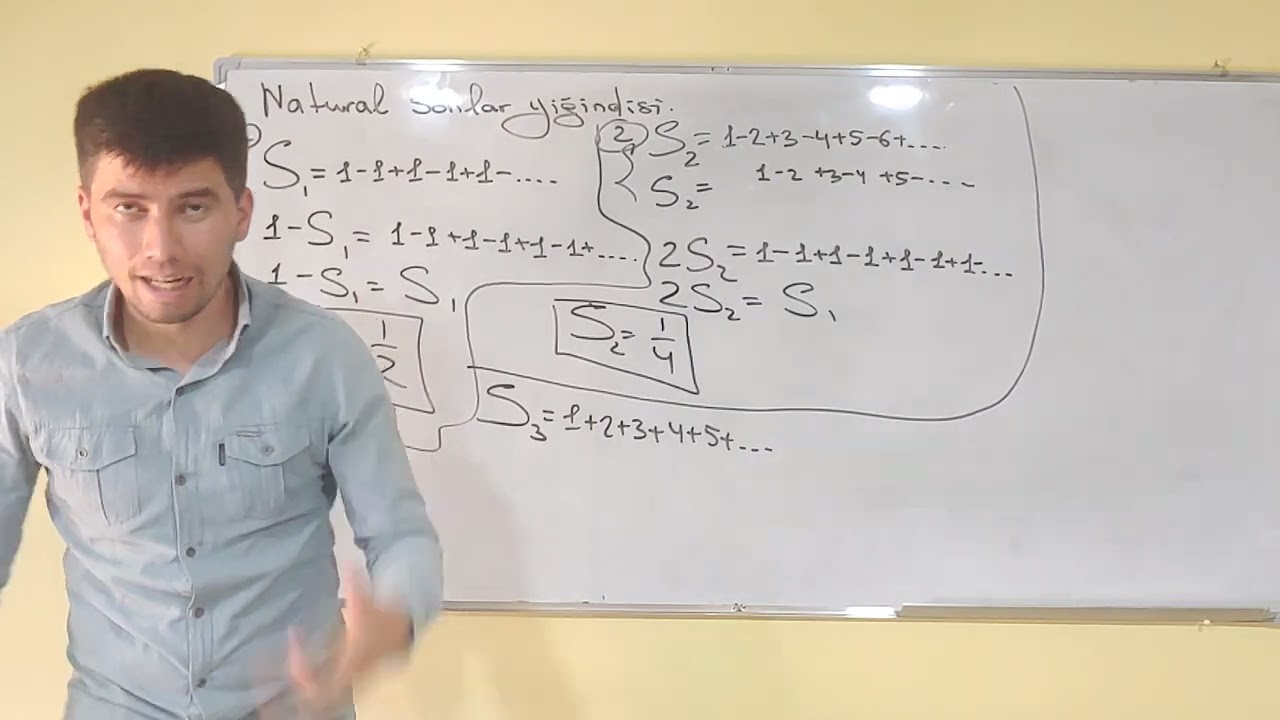 Natural sonlar yiğindisi.
S₁=1-1+1-1+1-....
1-S₁=1-1+1-1+1-1+....
1-S₁=S₁
1/2
2 S₂=1-2+3-4+5-6+....
S₂= 1-2+3-4+5-....
2S₂=1-1+1-1+1-1+1-...
2S₂=S₁
S₂=1/4
S₃=1+2+3+4+5+...